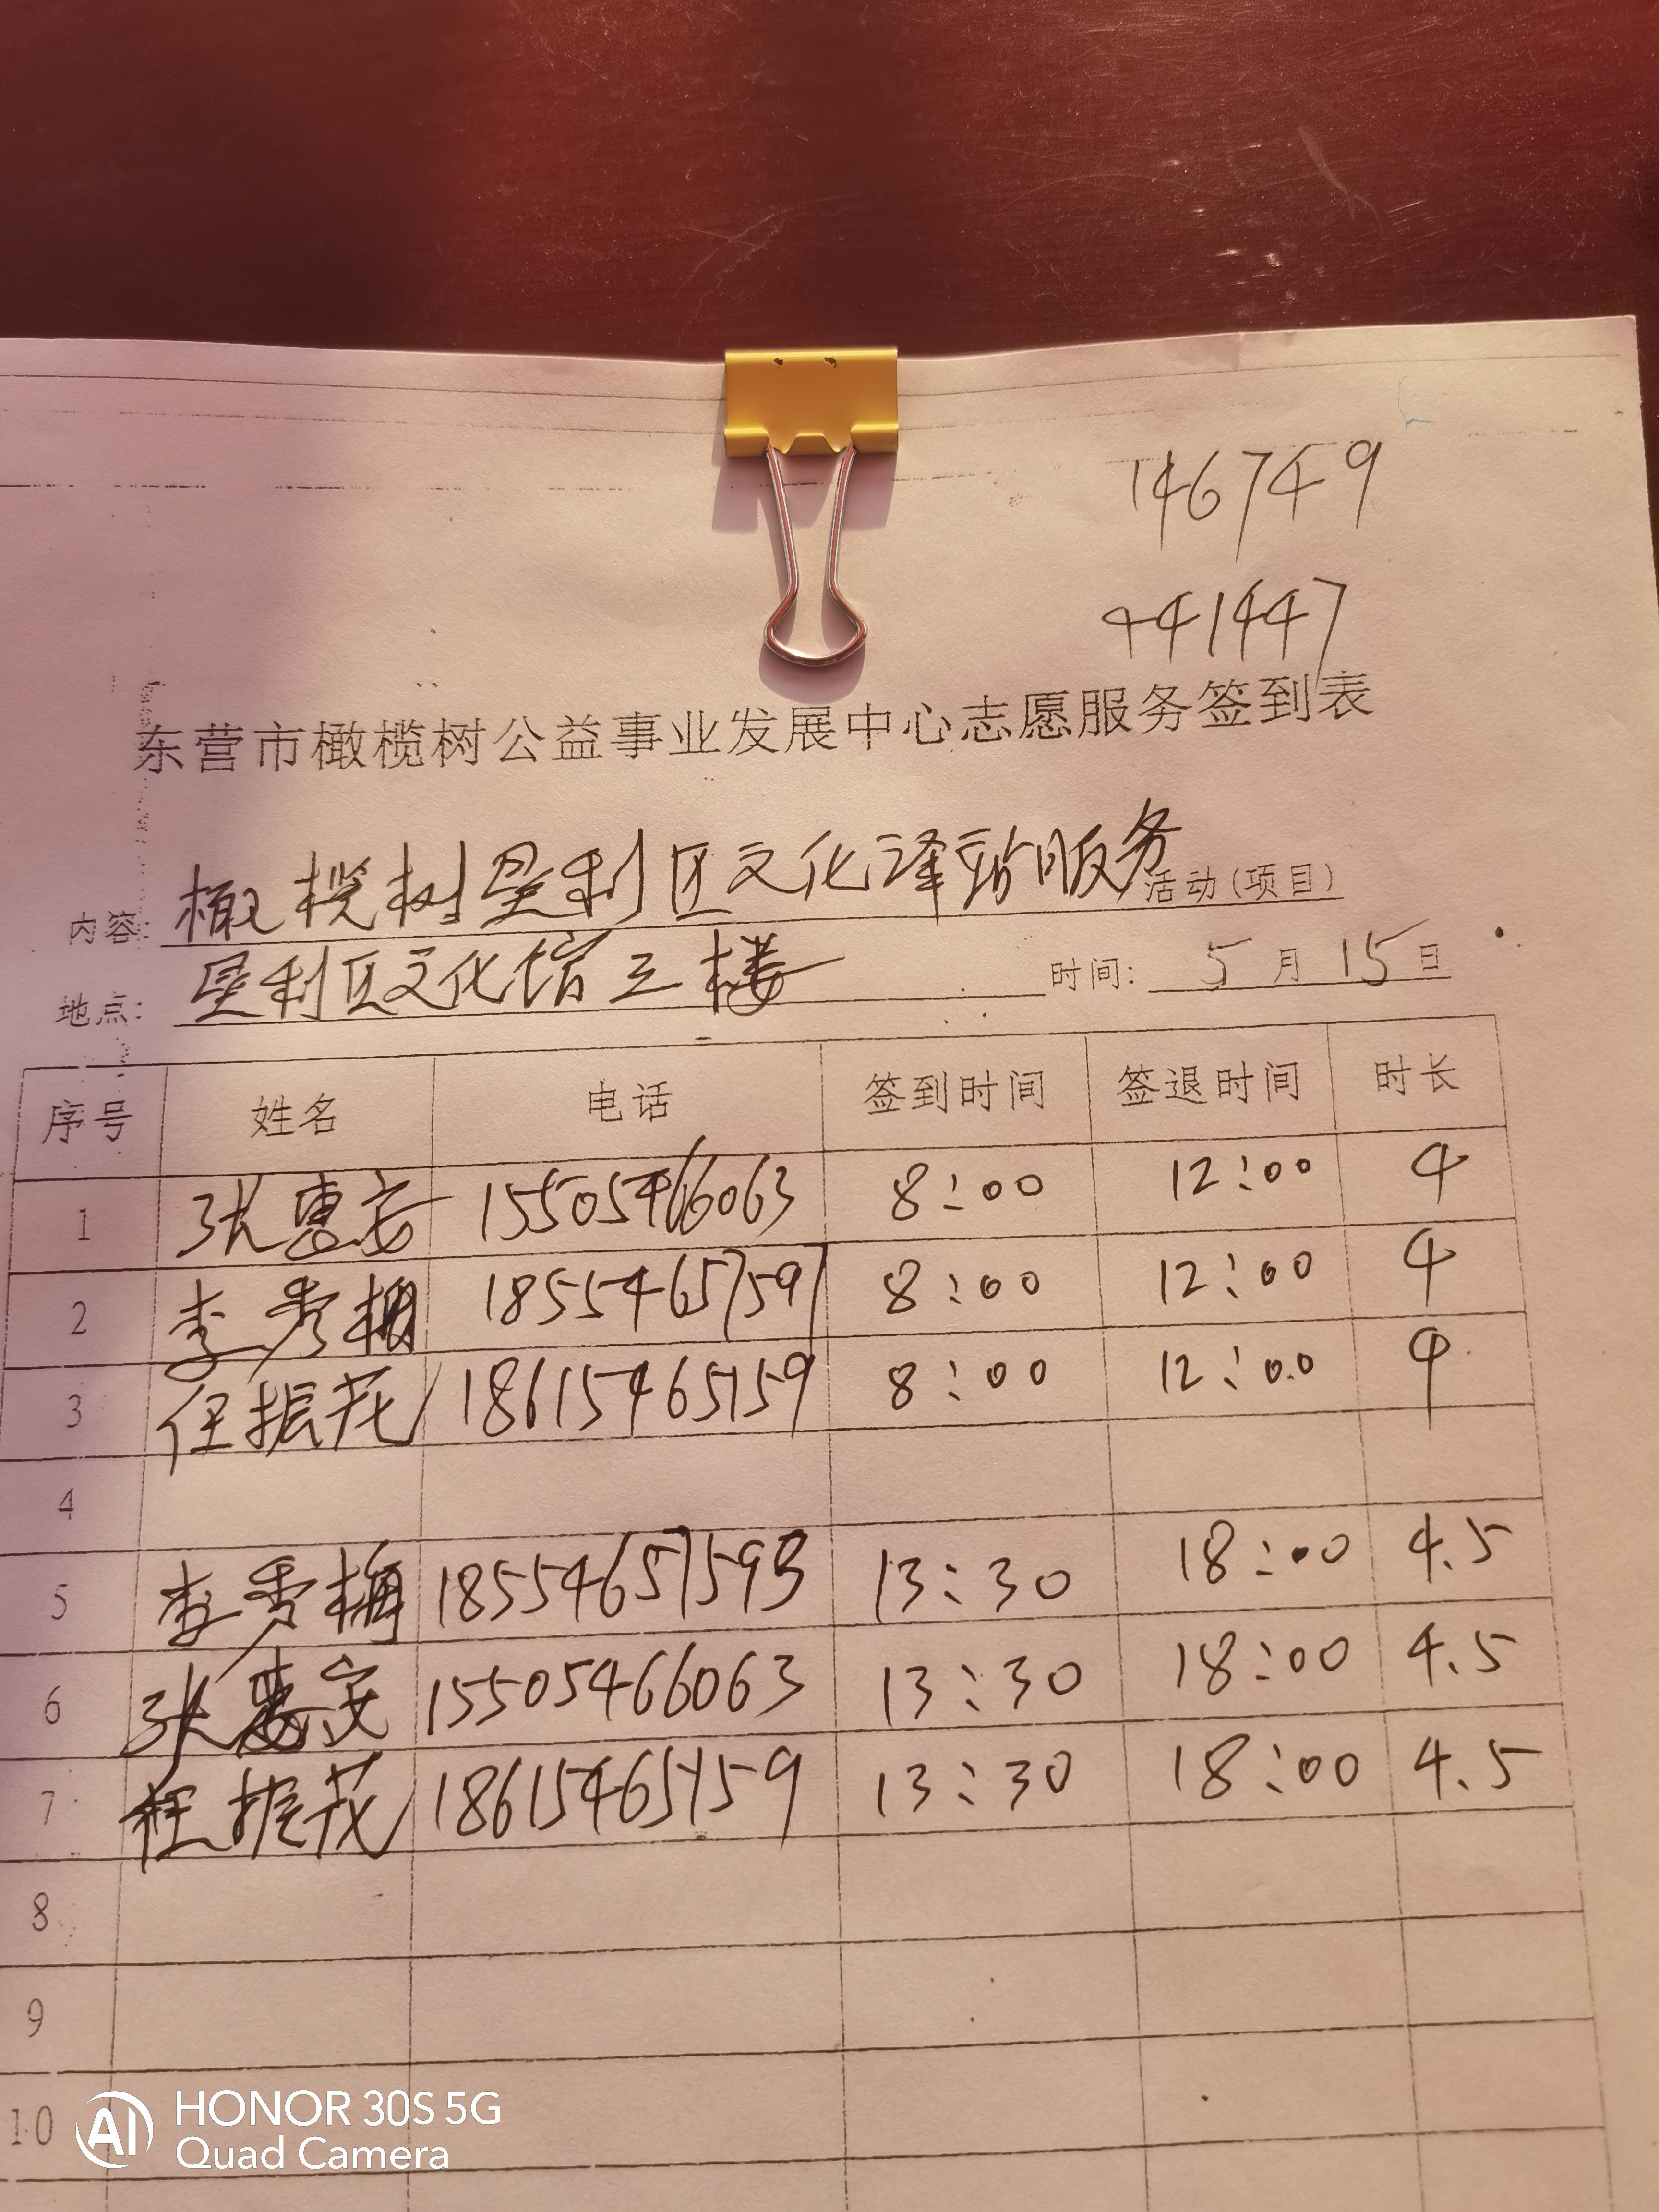 146749
441447
东营市橄榄树公益事业发展中心志愿服务签到表
内容: 橄榄树垦利区文化驿站服务 活动(项目)
地点: 垦利区文化馆三楼 时间: 5月15日
序号 姓名 电话 签到时间 签退时间 时长
1 张惠安 15505466063 8:00 12:00 4
2 李秀梅 8:00 12:00 4
3 任振花 18615465159 8:00 12:00 4
4
5 李秀梅 18554657593 13:30 18:00 4.5
6 张惠安 15505466063 13:30 18:00 4.5
7 任振花 18615465159 13:30 18:00 4.5
8
9
10
AI HONOR 30S 5G
Quad Camera